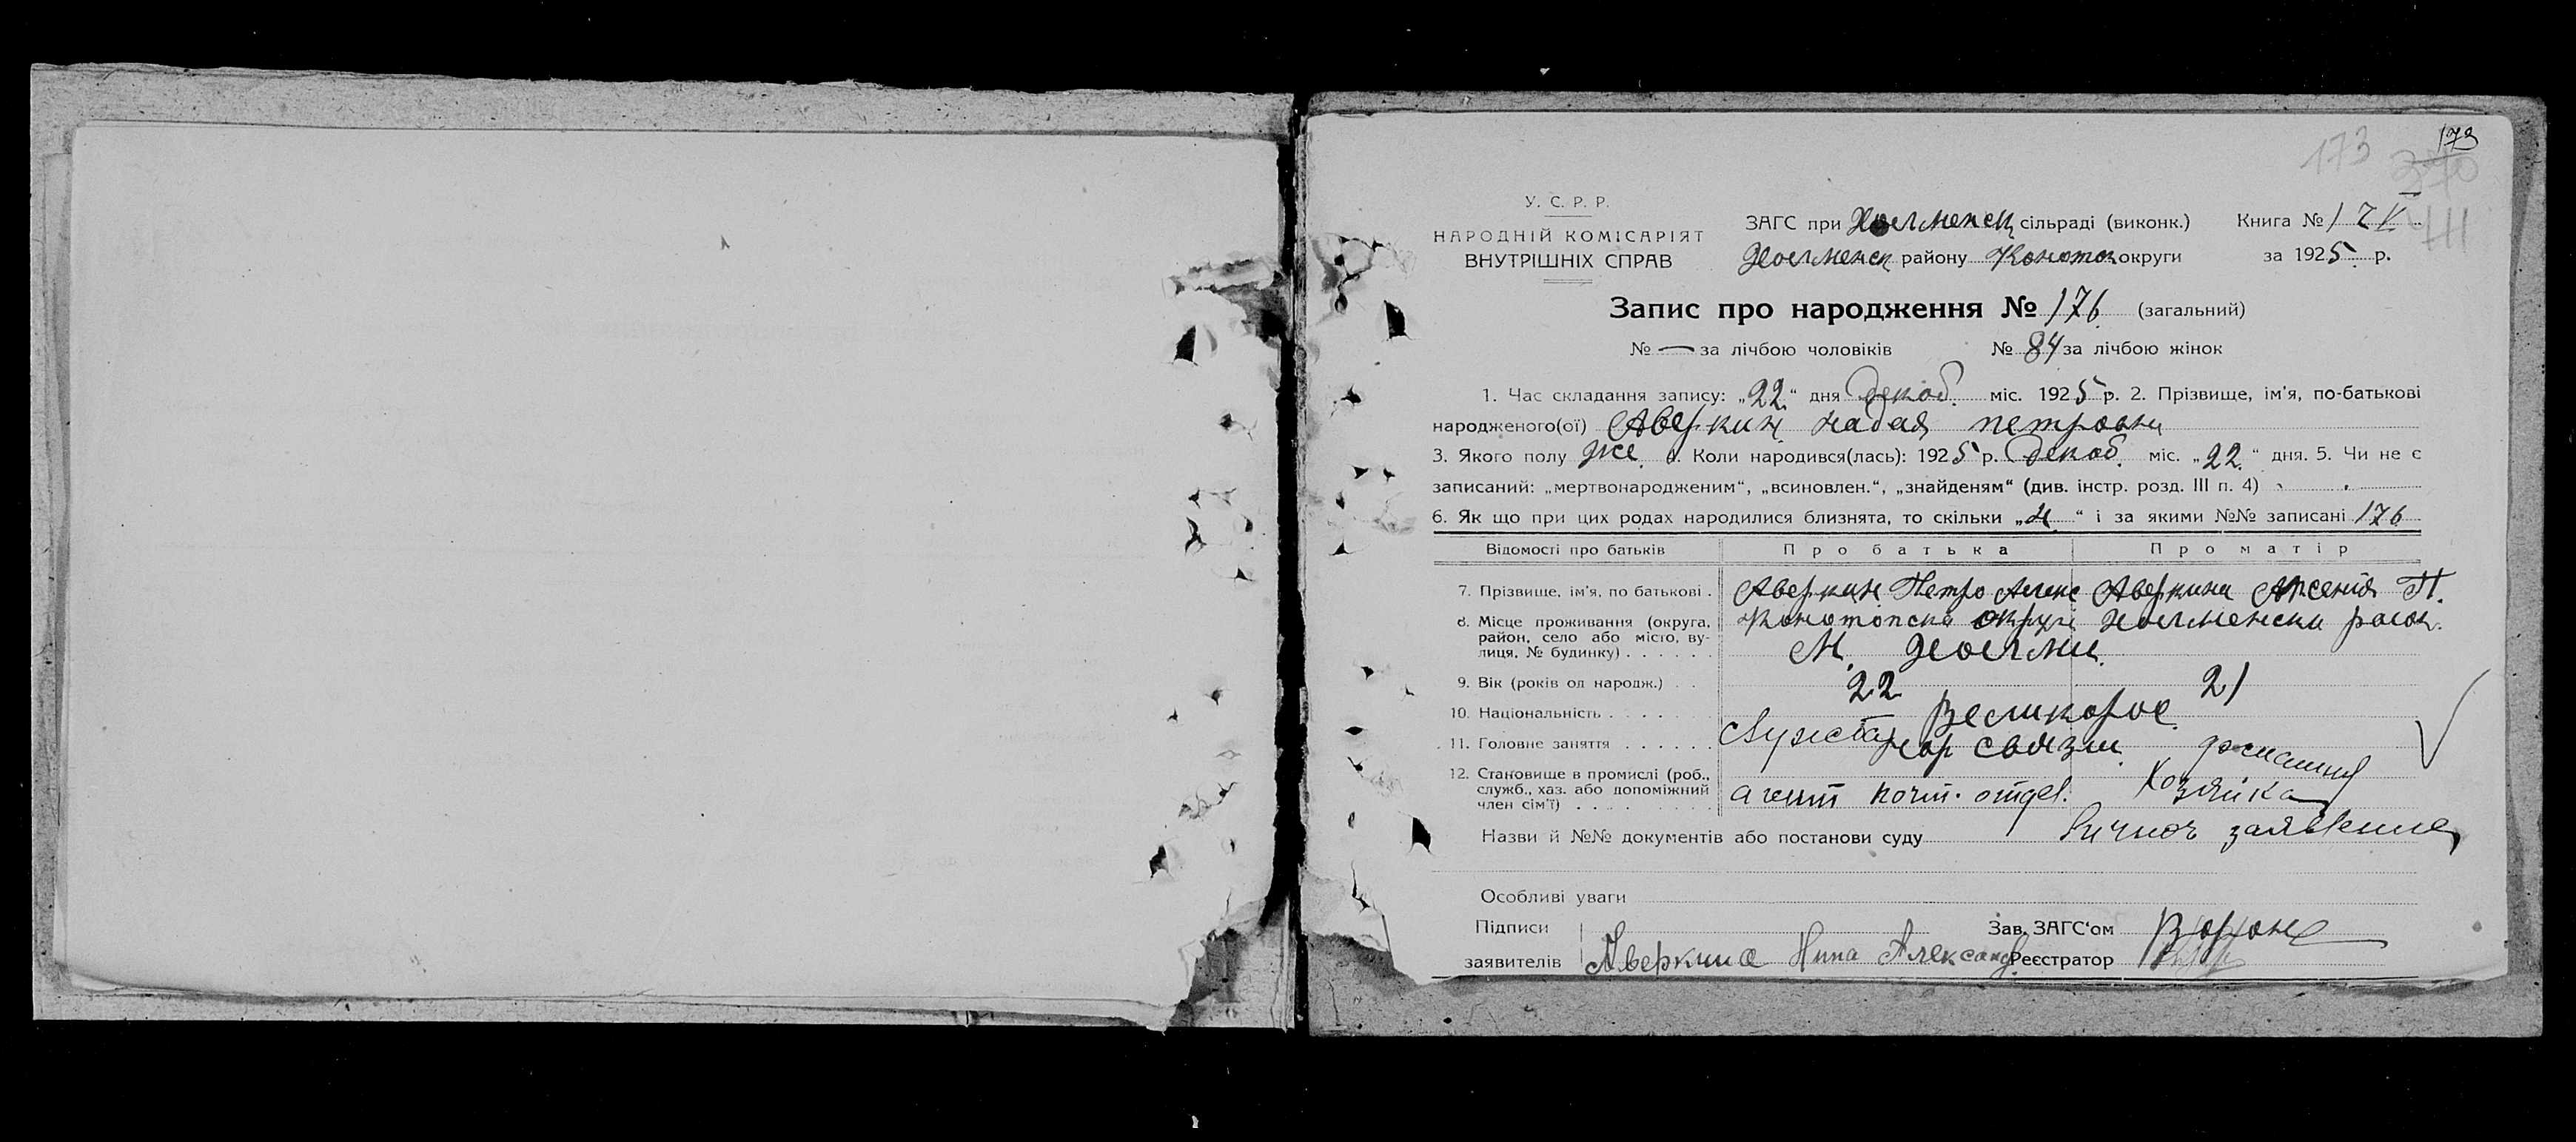 173
173
У. С. Р. Р.
НАРОДНІЙ КОМІСАРІЯТ
ВНУТРІШНІХ СПРАВ
ЗАГС при Холменск сільраді (виконк.) Книга № 1
Холменск району Конотоп округи за 1925 р.
Запис про народження № 176 (загальний)
№ — за лічбою чоловіків № 84 за лічбою жінок
1. Час складання запису: „22“ дня Декаб. міс. 1925 р. 2. Прізвище, ім'я, по-батькові
народженого(ої) Аверкин Надая петровна
3. Якого полу Же. 4. Коли народився(лась): 1925 р. Декаб. міс. „22“ дня. 5. Чи не є
записаний: „мертвонародженим“, „всиновлен.“, „знайденям“ (див. інстр. розд. III п. 4)
6. Як що при цих родах народилися близнята, то скільки „ “ і за якими №№ записані 176
Відомості про батьків Про батька Про матір
7. Прізвище, ім'я, по батькові . Аверкин Петро Алекс Аверкина Арсенія П.
8. Місце проживання (округа, район, село або місто, вулиця, № будинку) . . . . . Конотопска округи Холменски район.
М. Холми
9. Вік (років од народж.) . . 22 21
10. Національність . . . . . . Великорос
11. Головне заняття . . . . . . Служста нар связи домашняя
12. Становище в промислі (роб., служб., хаз. або допоміжний член сім'ї) . . . . агент почт. отдел. Хозяйка
Назви й №№ документів або постанови суду Личног заявление
Особливі уваги
Підписи Зав. ЗАГС'ом
заявителів Аверкина Нина Александ. Реєстратор